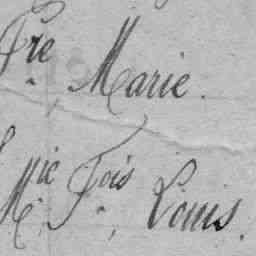 Fre Marie.
Mie Fois, Louis.